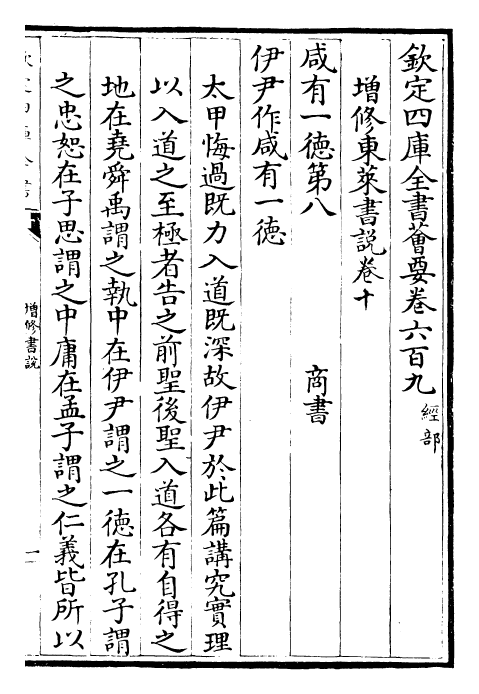 欽定四庫全書薈要卷六百九 經部
增修東萊書說卷十
咸有一德第八 商書
伊尹作咸有一德
太甲悔過既力入道既深故伊尹於此篇講究實理
以入道之至極者告之前聖後聖入道各有自得之
地在堯舜禹謂之執中在伊尹謂之一德在孔子謂
之忠恕在子思謂之中庸在孟子謂之仁義皆所以
增修書說
一